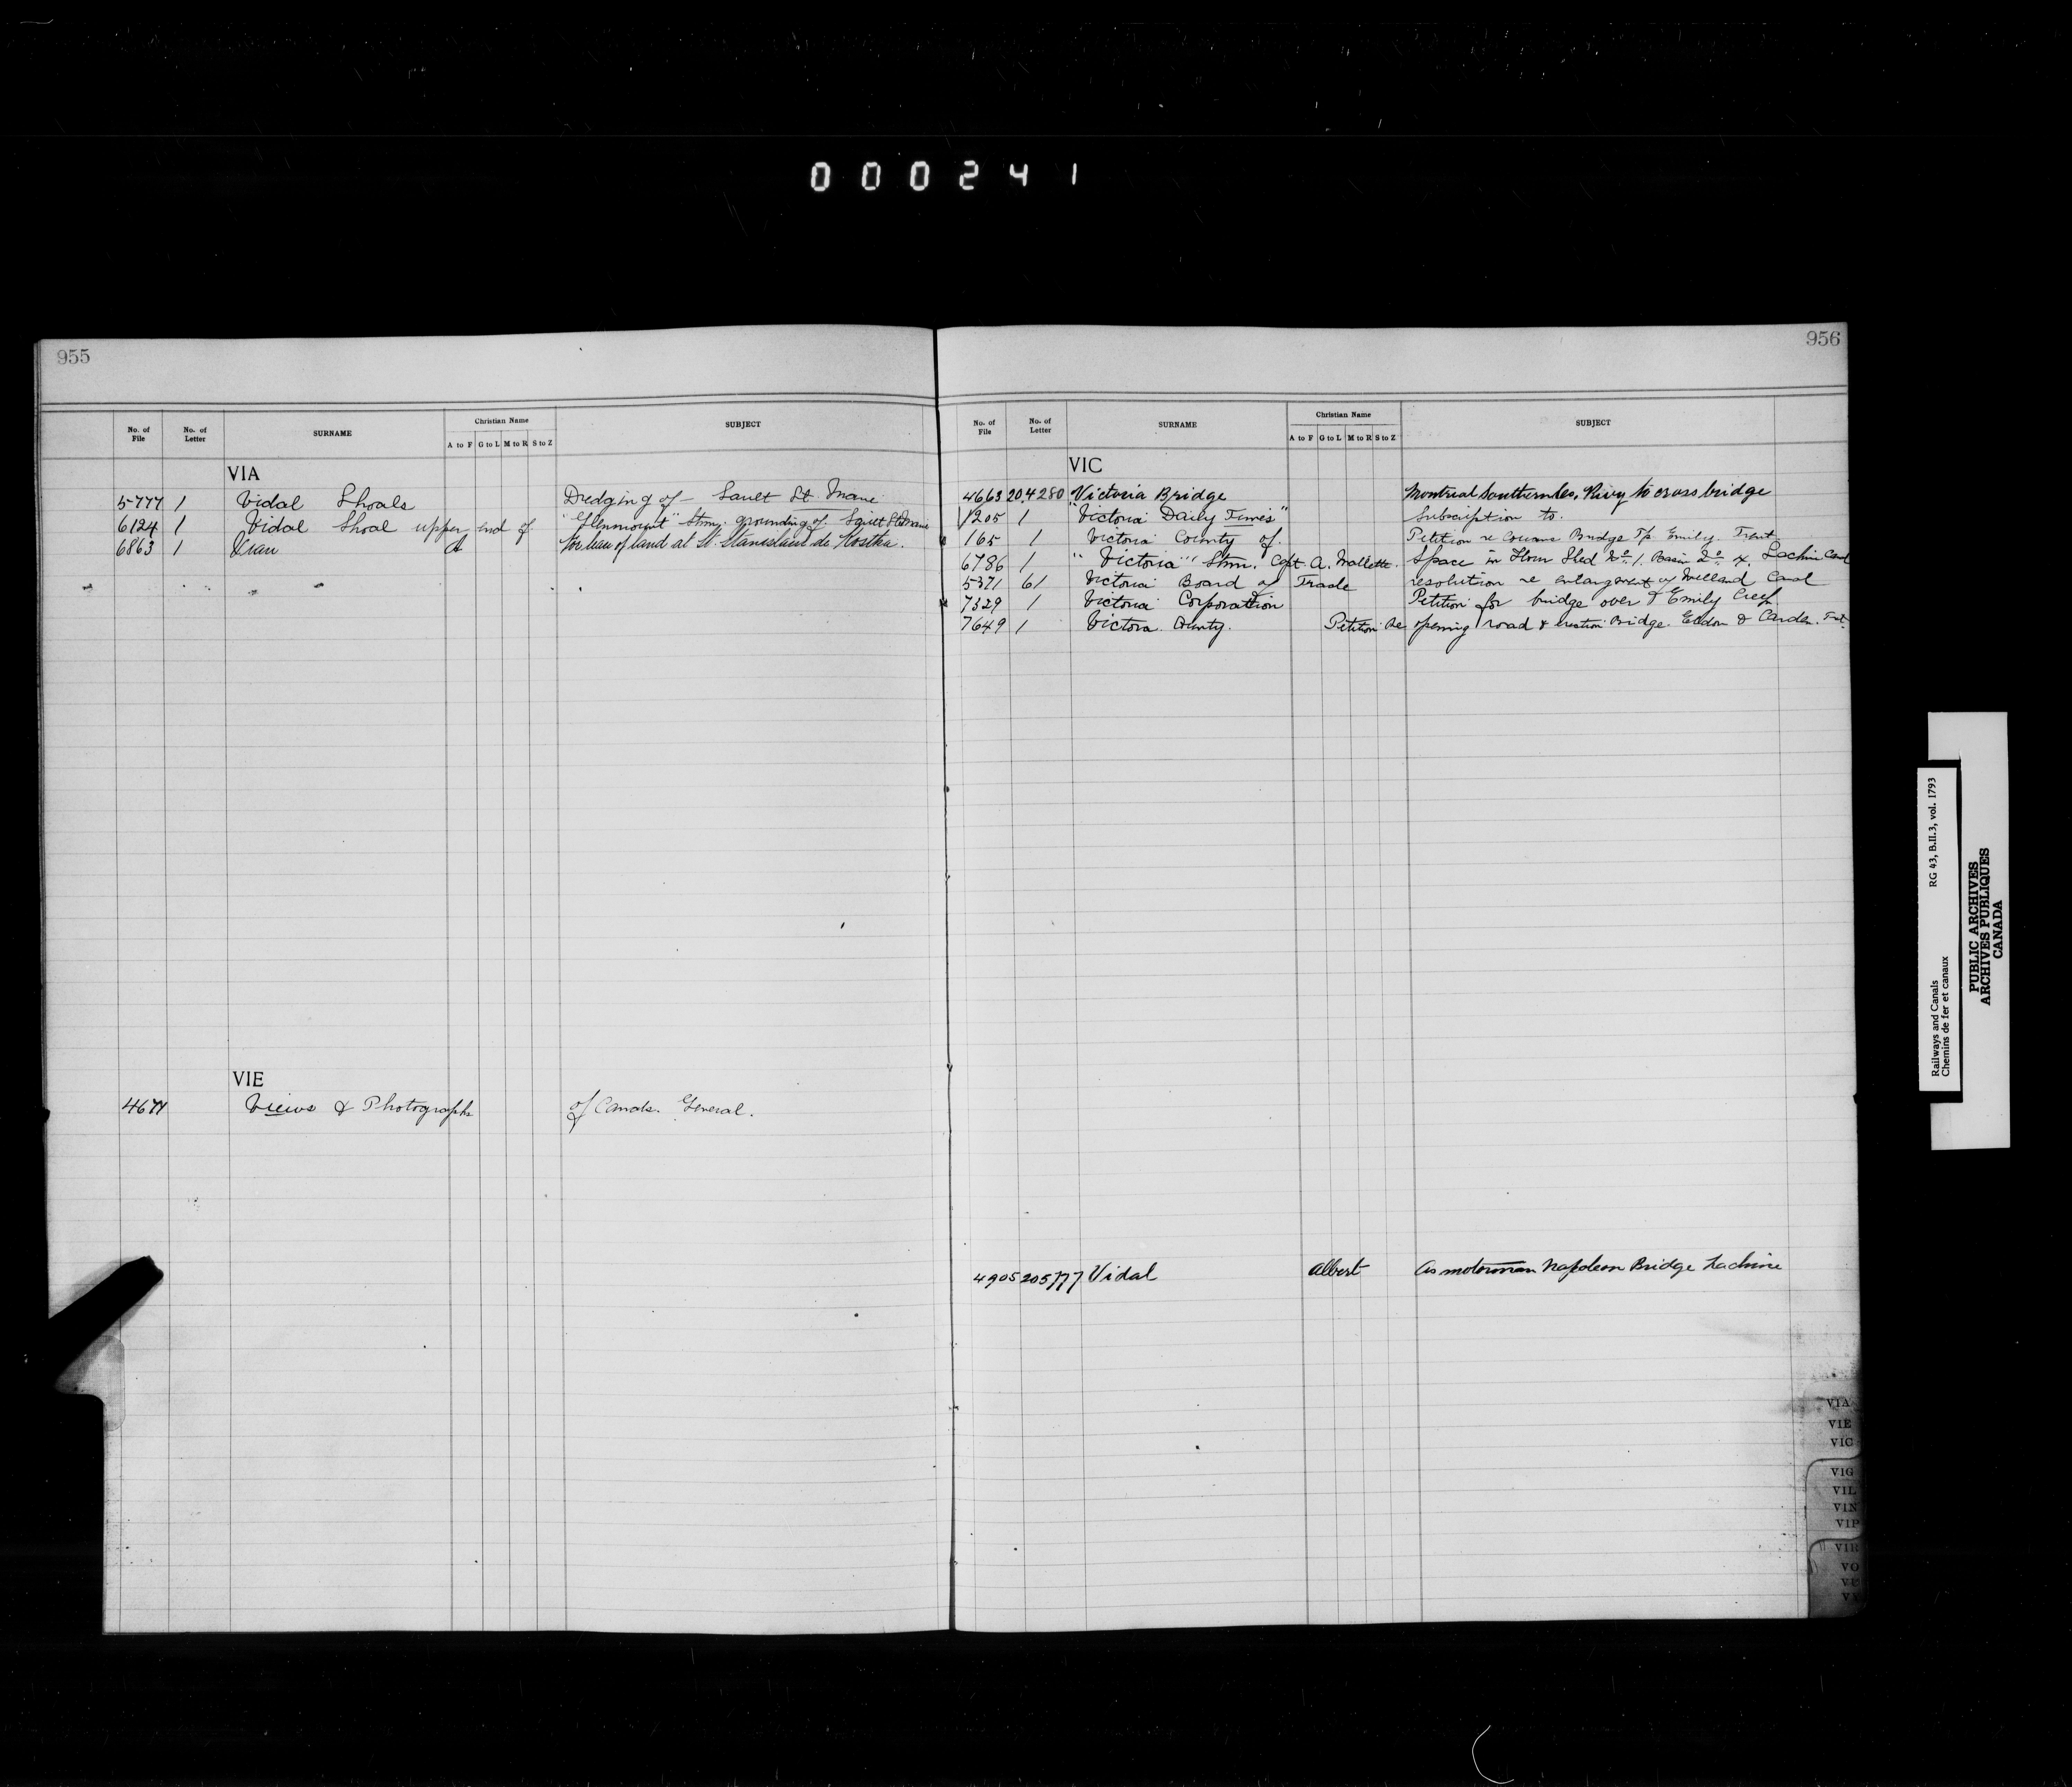 000241
955
No. of File No. of Letter SURNAME Christian Name A to F G to L M to R S to Z SUBJECT
VIA
5777 1 Vidal Shoals Dredging of – Sault St. Marie
6124 1 Vidal Shoal upper end of "Glenmount" Stmr. grounding of. Sault St Marie
6863 1 Viau A for lease of land at St. Stanislaus de Kostka.
VIE
4677 Views & Photographs of Canals. General.
956
No. of File No. of Letter SURNAME Christian Name A to F G to L M to R S to Z SUBJECT
VIC
4663 204280 Victoria Bridge Montreal Southern Co. to cross bridge
1205 1 "Victoria Daily Times" Subscription to.
165 1 Victoria County of. Petition re Cowans Bridge Tp. Emily. Trent
6786 1 "Victoria" Stmr. Capt. A. Mallette. Space in Flour Shed No. 1. Basin No. 4. Lachine Canal
5371 61 Victoria Board of Trade resolution re enlargement of Welland Canal
7329 1 Victoria Corporation Petition for bridge over Emily Creek
7649 1 Victoria County. Petition re opening road & erection Bridge. Eldon & Carden. Trt.
4905 205777 Vidal Albert As motorman Napoleon Bridge Lachine
VIA
VIE
VIC
VIG
VIL
VIN
VIP
VIR
VO
VU
VY
Railways and Canals RG 43, B.II.3, vol. 1793
Chemins de fer et canaux
PUBLIC ARCHIVES
ARCHIVES PUBLIQUES
CANADA